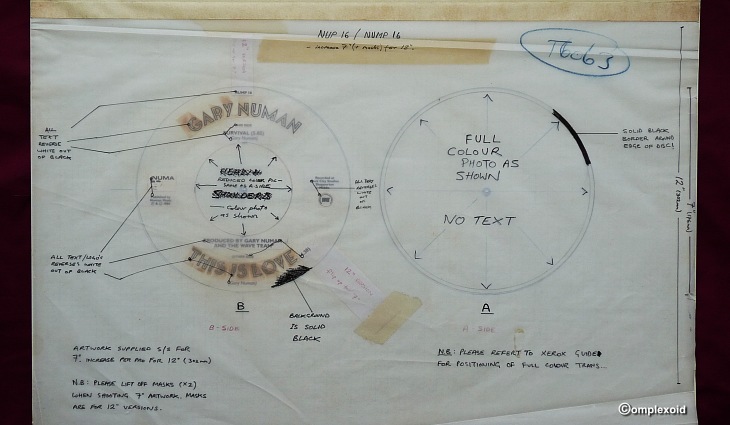 NUP 16 / NUMP 16
- INCREASE 7" (+ MASKS) FOR 12".
T6063
NUMP 16
GARY NUMAN
SURVIVAL
(Gary Numan)
ALL
TEXT
REVERSE
WHITE OUT
OF BLACK
NUMA
REDUCED COVER PIC-
SAME AS A SIDE
SHOULDERS
- Colour photo
as shown
ALL TEXT
REVERSES
WHITE
OUT OF
BLACK
PRODUCED BY GARY NUMAN
AND THE WAVE TEAM
THIS IS LOVE
(Gary Numan)
ALL TEXT/LOGO'S
REVERSES WHITE
OUT OF BLACK
B
B-SIDE
BACKGROUND
IS SOLID
BLACK
12" VERSION
FULL
COLOUR
PHOTO AS
SHOWN
NO TEXT
SOLID BLACK
BORDER AROUND
EDGE OF DISC!
12" (302mm)
7"
A
A-SIDE
ARTWORK SUPPLIED S/S FOR
7". INCREASE PER PRO FOR 12" (302mm)
N.B: PLEASE LIFT OFF MASKS (X2)
WHEN SHOOTING 7" ARTWORK. MASKS
ARE FOR 12" VERSIONS.
N.B: PLEASE REFER TO XEROX GUIDE
FOR POSITIONING OF FULL COLOUR TRANS...
©omplexoid